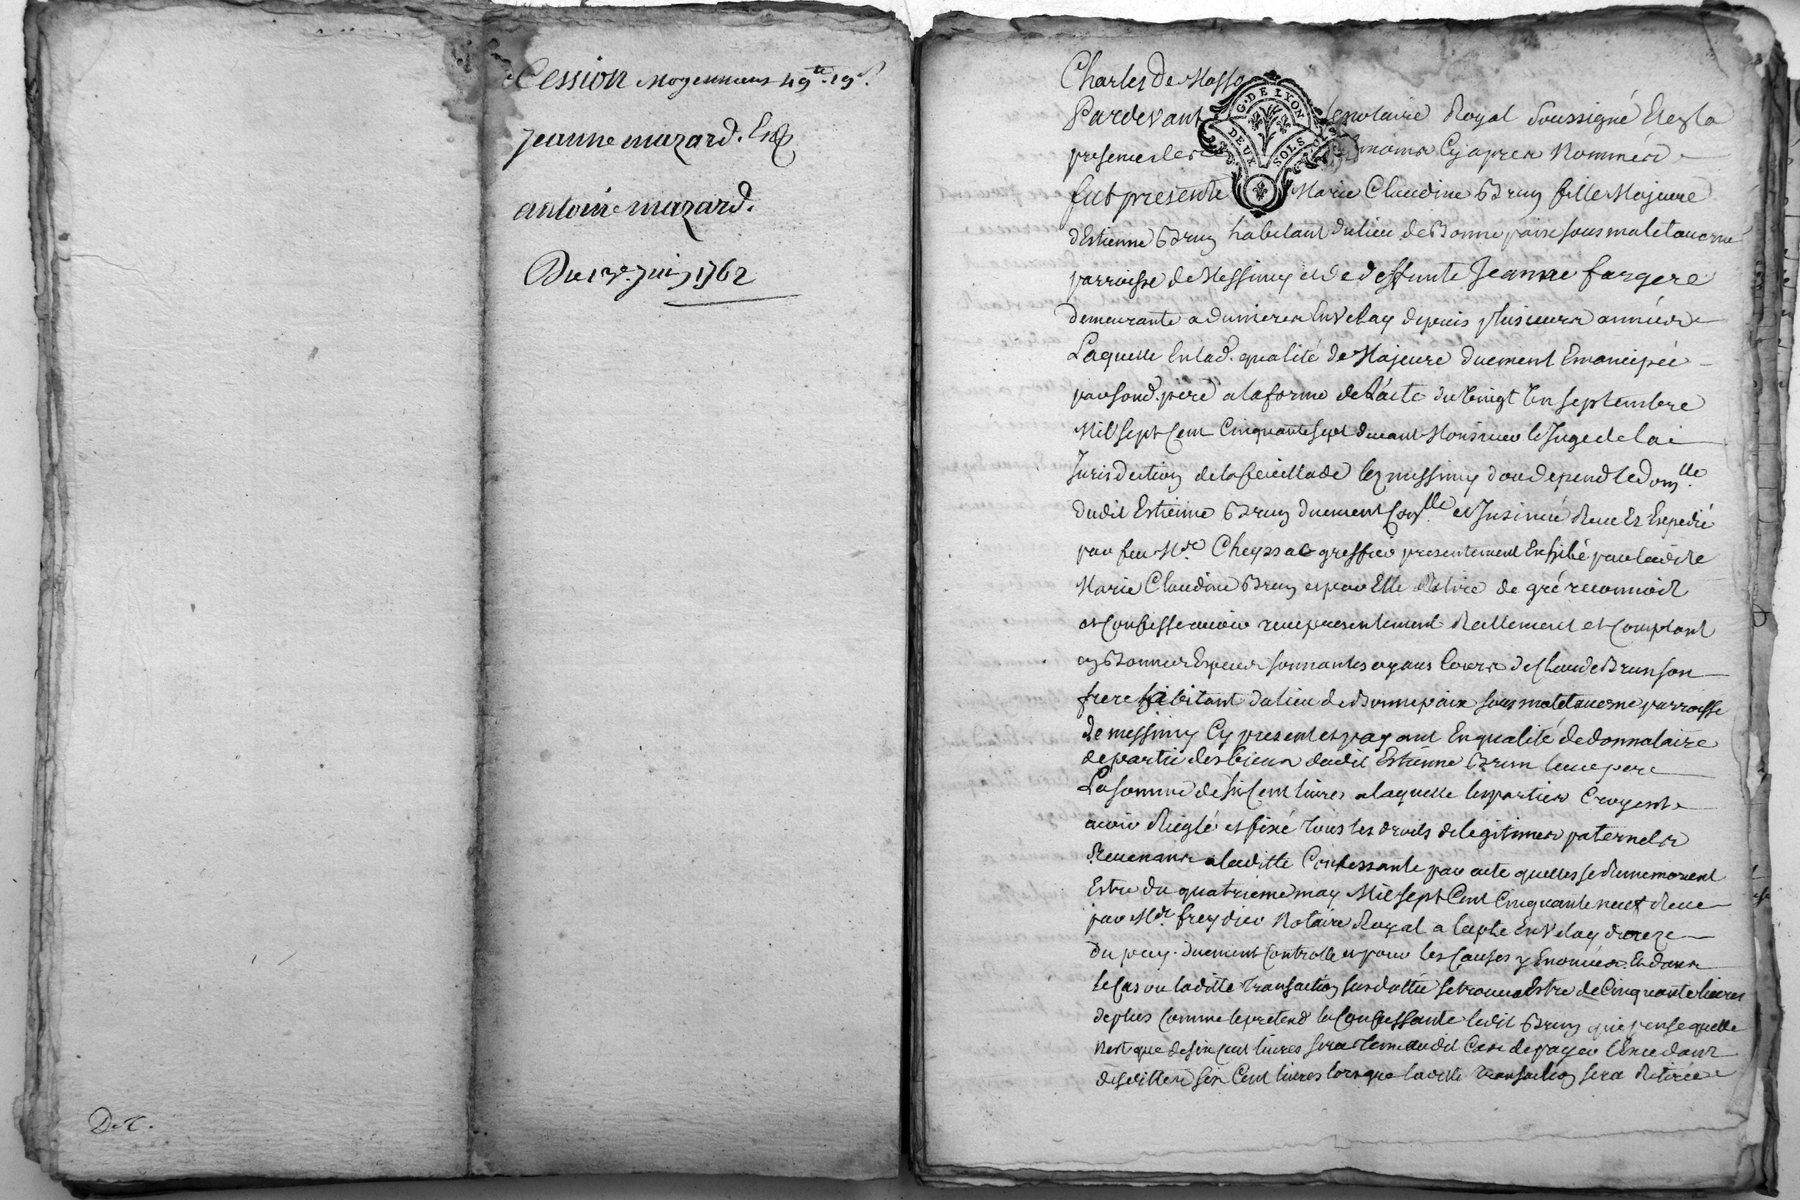 Cession moyennant 49tt. 19s.
jeanne mazard. Et
antoine mazard.
Du 17e. juin 1762
D.C.
Charles De Masso
Pardevant le notaire Royal soussigné Et en la
presence des temoins Cy apres Nommés
fut presente Marie Claudine Brun fille Majeure
d'Estienne Brun habitant du lieu de Bonne paix sous maletaverne
parroisse de Messimy et de deffunte Jeanne fargere
demeurante a dunieres En Velay depuis plusieurs années
Laquelle En lad. qualité de Majeure duement Emancipée
par sond. pere a la forme de L'acte du Vingt Un septembre
Mil sept Cent Cinquante sept devant Monsieur le Juge de la
Jurisdiction de la feuillade les messimy dou depend le Domlle
dudit Estienne Brun duement Conllé et Insinué Receu Et Expedié
par feu Mre Cheyssac greffier presentement Exhibé par ladite
Marie Claudine Brun et par Elle Retiré de gré reconnoit
et Confesse avoir receu presentement Reellement et Comptant
en Bonnes Especes sonnantes ayans Cours de Claude Brun son
frere habitant du lieu de Bonnepaix sous maletaverne parroisse
de messimy Cy present et payant En qualité de donnataire
de partie des biens dudit Estienne Brun leur pere
La somme de six Cent livres a laquelle les parties Croyent
avoir Reiglé et fixé tous les droits de legitimes paternels
Revenans a laditte Confessante par acte quelles se Rememorent
Estre du quatrieme may Mil sept Cent Cinquante neuf Receu
par Mr freydier Notaire Royal a Lapte En Velay
du puy. duement Controllé et pour les Causes y Enoncées. Et dans
le Cas ou laditte transaction susdattée se trouva Estre de Cinquante livres
de plus Comme le pretend la Confessante ledit Brun qui pense quelle
n'est que de six cent livres sera tenu audit Cas de payer L'Excedant
desdittes six Cent livres lorsque laditte transaction sera Retirée
G. DE LYON
DEUX SOLS